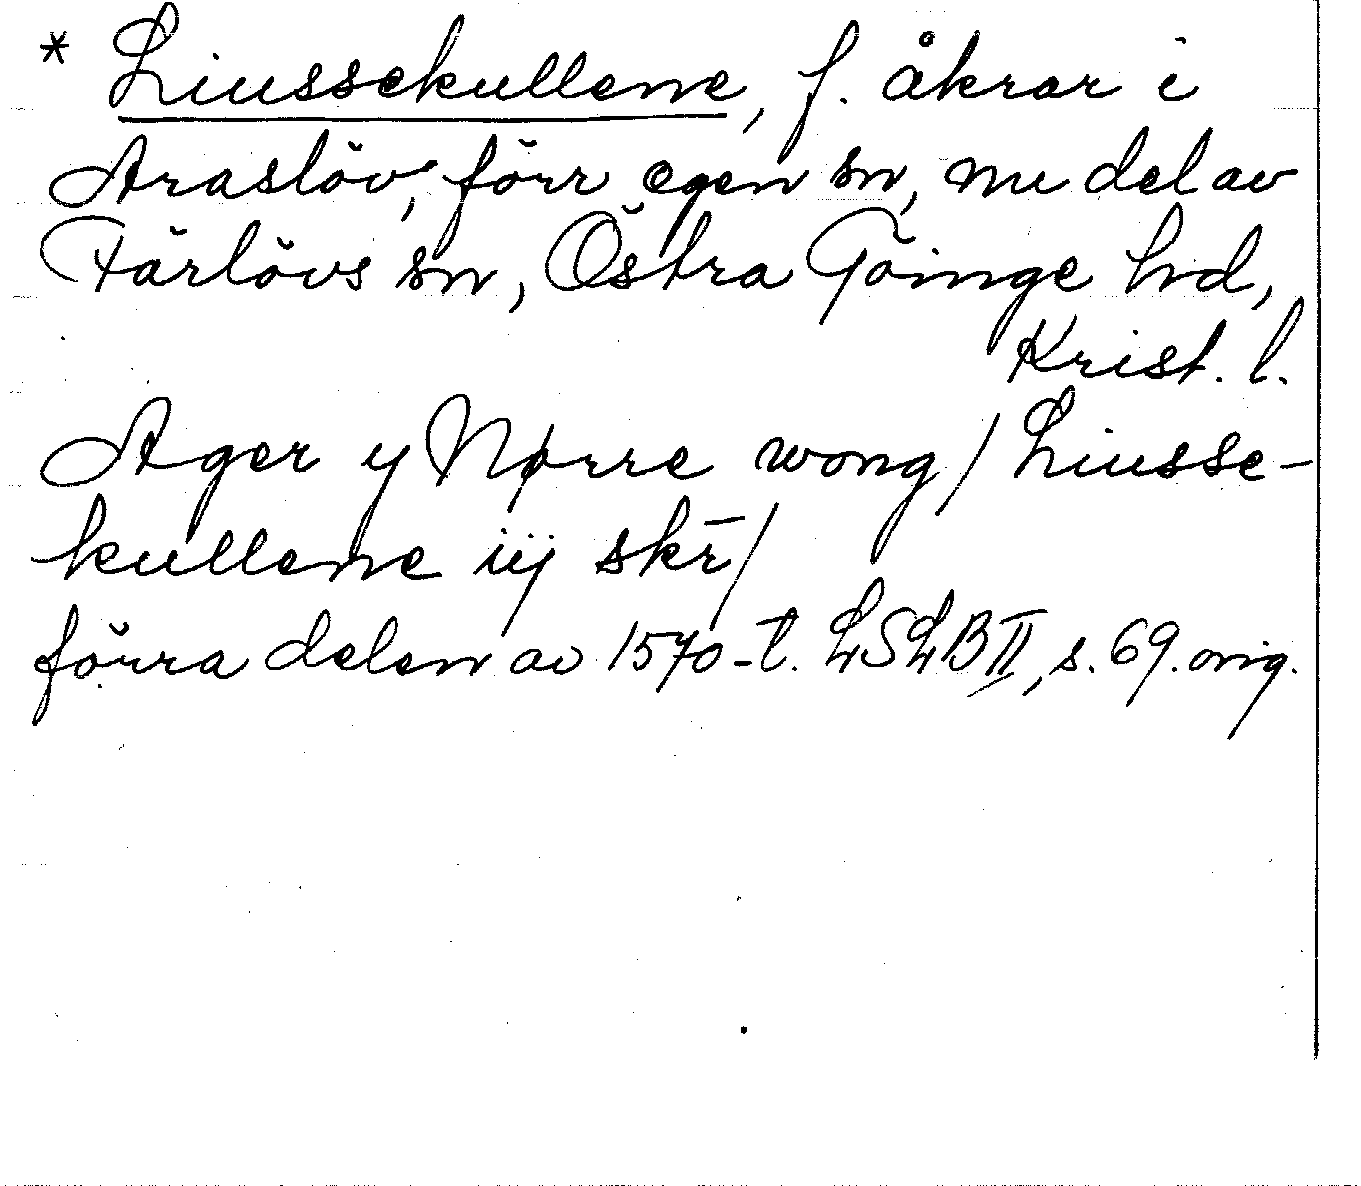 * Liussekullene, f. åkrar i
Araslöv, förr egen sn, nu del av
Färlövs sn, Östra Göinge hd,
Krist. l.
Ager y Nørre wong / Liusse-
kullene iij skr̄ /
förra delen av 1570-t. LSLB II, s. 69. orig.